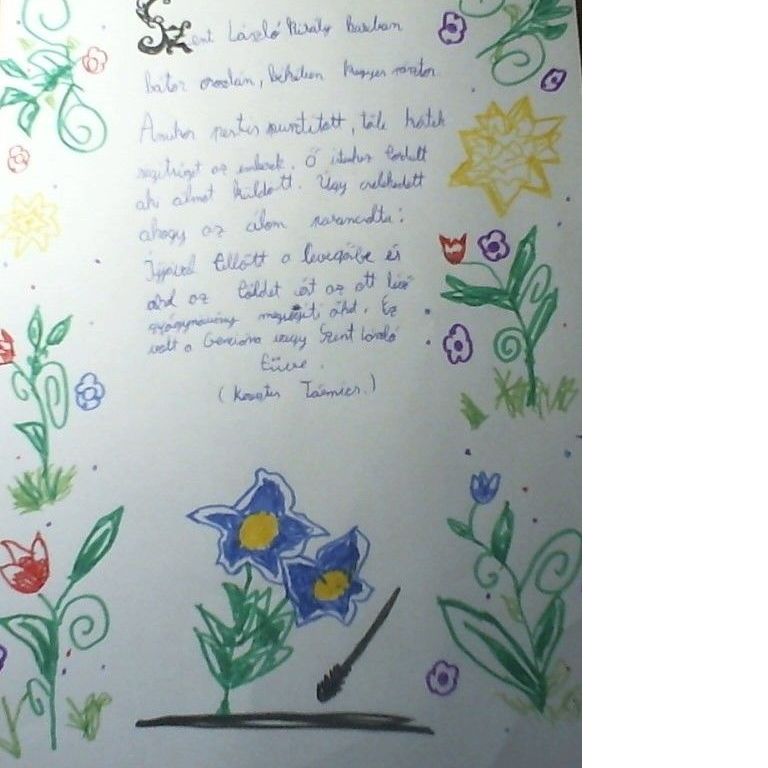 Szent László Király harcban
bátor oroszlán, békében kegyes pásztor.
Amikor pestis pusztított, tőle kértek
segítséget az emberek. Ő Istenhez fordult
aki álmot küldött. Úgy cselekedett
ahogy az álom parancsolta:
Íjjával fellőtt a levegőbe és
ahol az földet ért az ott lévő
gyógynövény megsegíti őket. Ez
volt a Genciána vagy Szent László
füve.